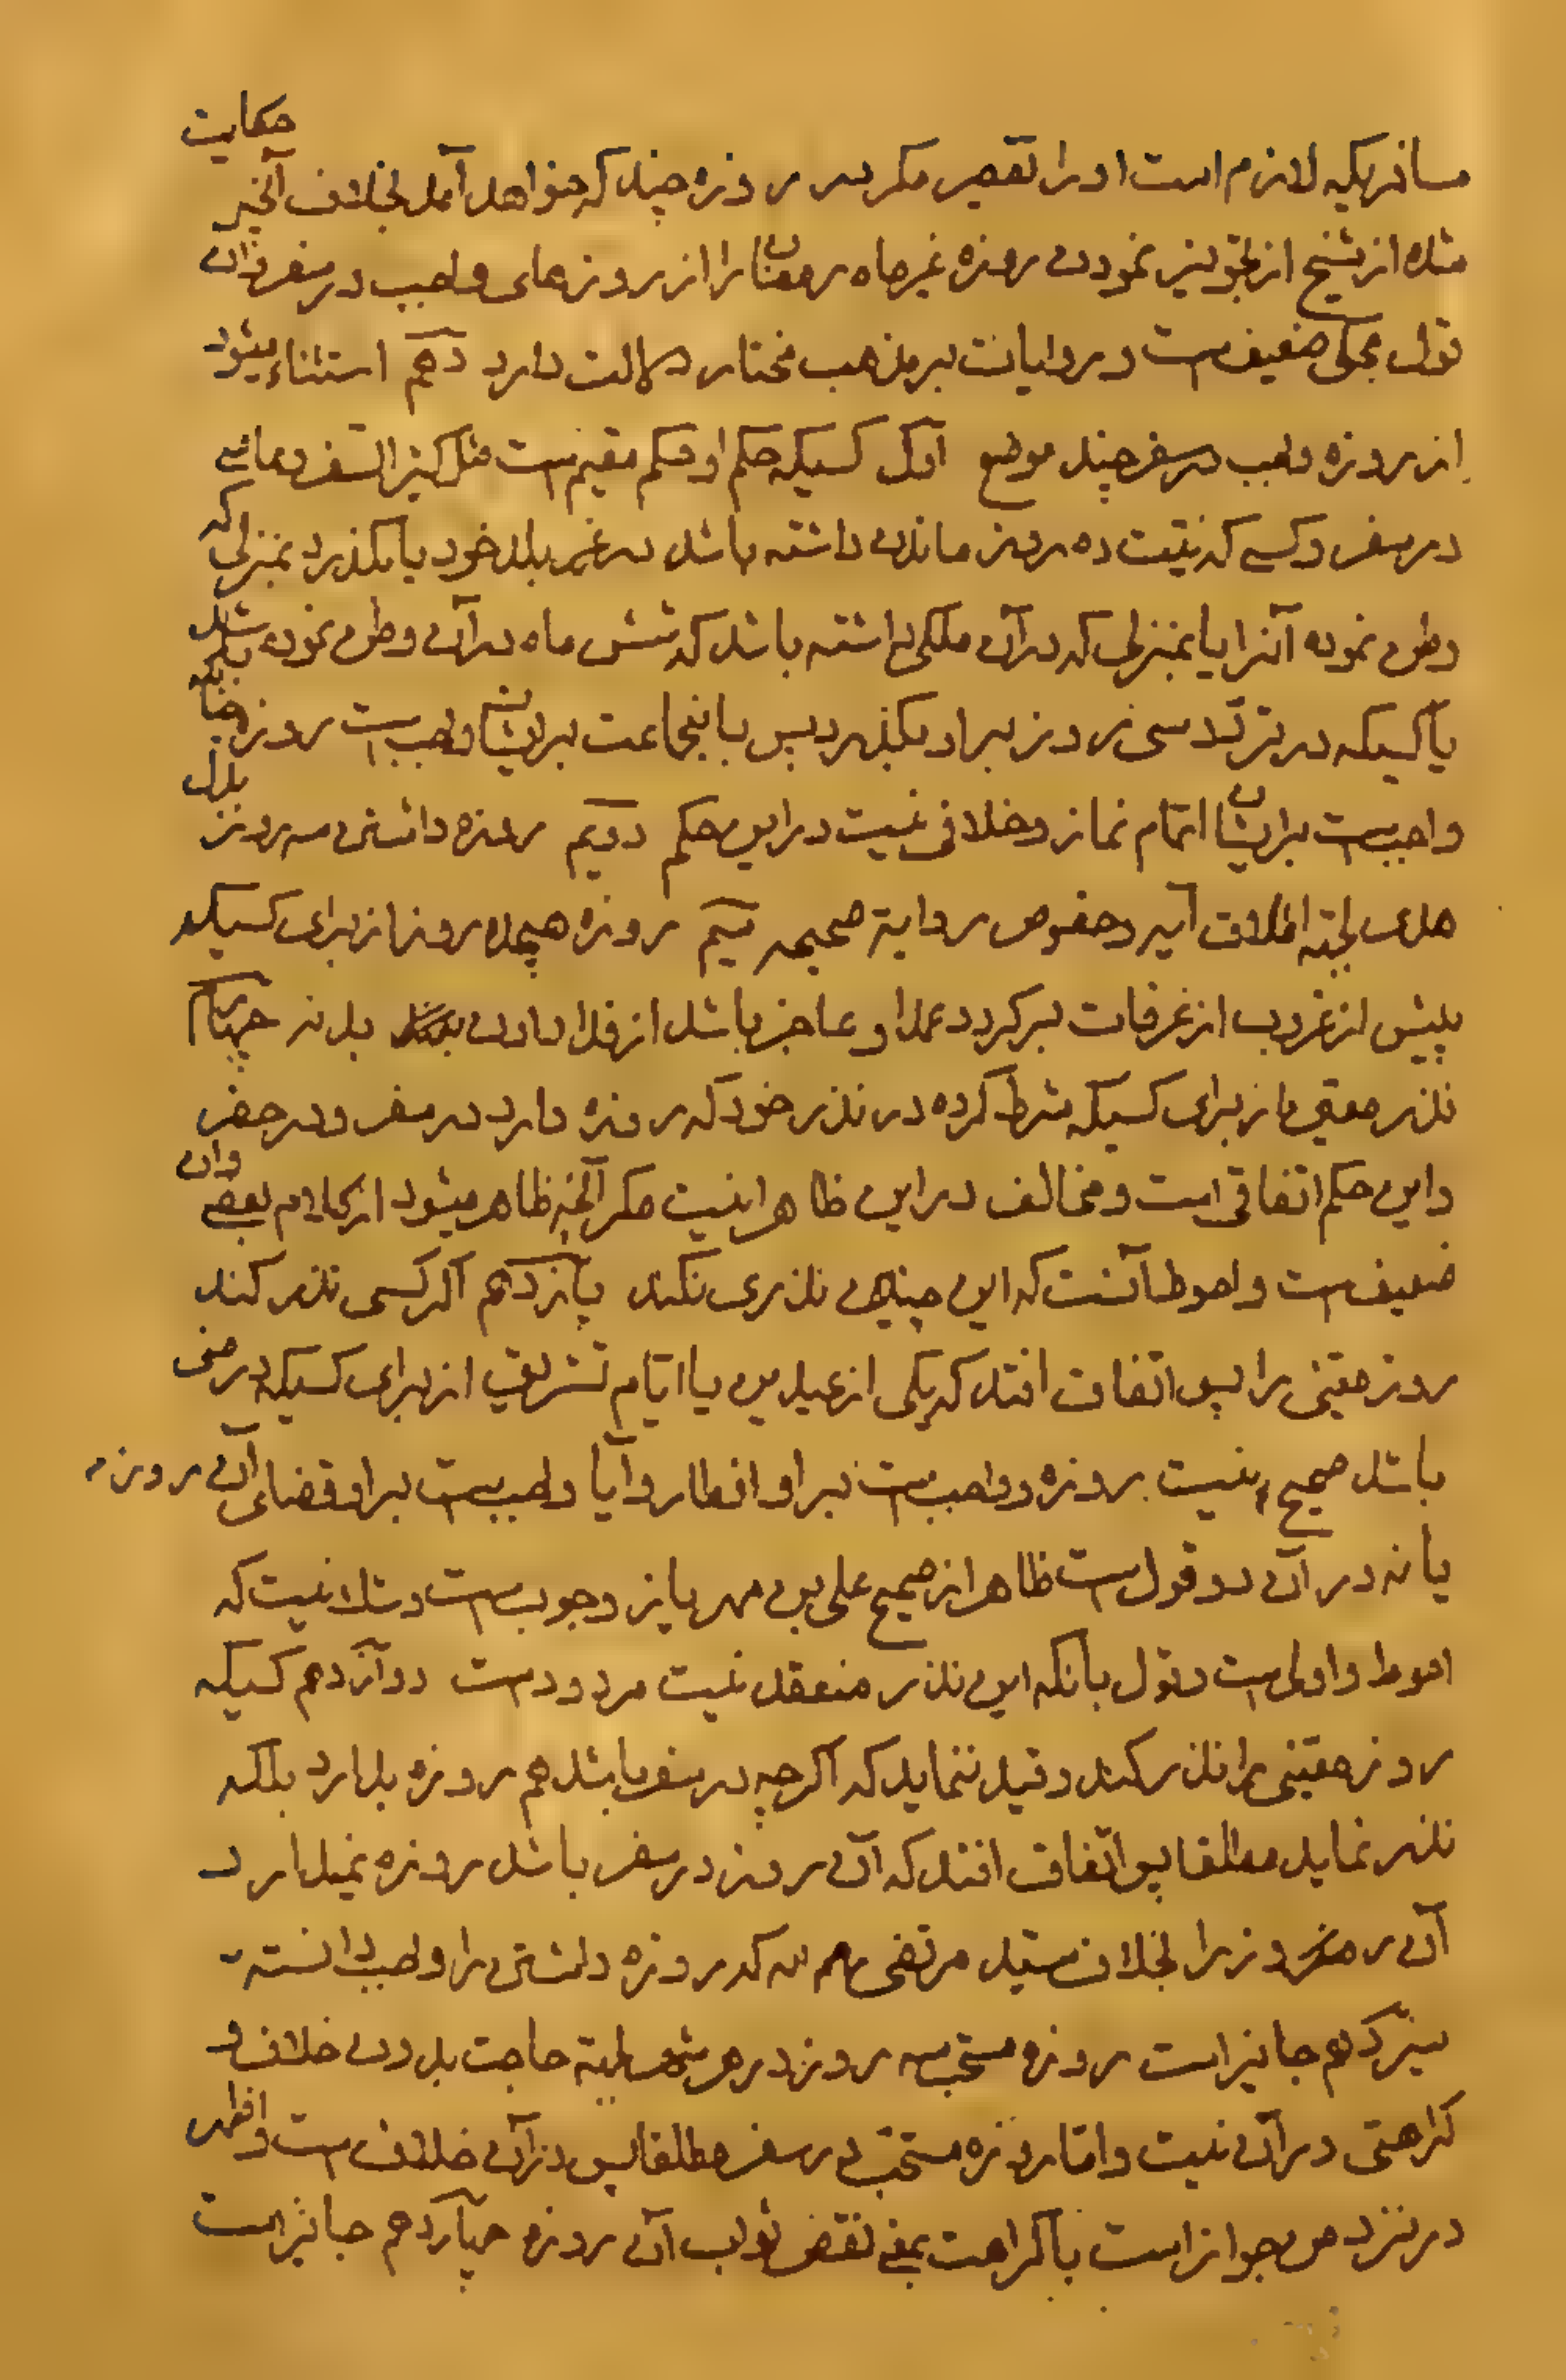 مسافریکه لازم است او را تقصیر مگر در روزه چند که خواهد آمد بخلاف آنچه حکایت
شده از شیخ از تجویز نمودن روزه غیر ماه رمضان را از روزهای واجب در سفر و این
قول محکی ضعیف است و روایات بر مذهب مختار دلالت دارد دهم استثناء میشود
از روزه واجب در سفر چند موضع اول کسیکه حکم او حکم مقیم است مثل کثیر السفر و عاصی
در سفر و کسی که نیت ده روز ماندن داشته باشد در غیر بلد خود یا بگذرد بمنزلی که
وطن نموده آنرا یا بمنزلی که در آن ملکی داشته باشد که شش ماه در آن وطن نموده باشد
یا کسیکه در تردد سی روز بر او بگذرد پس باینجماعت بر ایشان واجب است روزه چنانکه
واجبست بر ایشان اتمام نماز و خلافی نیست در این حکم دویم روزه داشتن سه روز بدل
هدی بجهة اطلاق آیه و خصوص روایة صحیحه سیم روزه هیجده روز از برای کسیکه
پیش از غروب از عرفات برگردد عمدا و عاجز باشد از فدا دادن بدنه چهارم
نذر معین از برای کسیکه شرط کرده در نذر خود که روزه دارد در سفر و در حضر
و این حکم اتفاقی است و مخالف در این ظاهرا نیست مگر آنچه ظاهر میشود از کلام بعضی و آن
ضعیف است و احوط آنست که این چنین نذری نکند یازدهم اگر کسی نذر کند
روز معینی را پس اتفاق افتد که یکی از عیدین یا ایام تشریق از برای کسیکه در منی
باشد صحیح نیست روزه و واجب است بر او افطار و آیا واجبست بر او قضای آن روزه
یا نه در آن دو قول است ظاهر از صحیح علی بن مهزیار وجوب است و شک نیست که
احوط و اولی است و قول بانکه این نذر منعقد نیست مردود است دوازدهم کسیکه
روز معینی را نذر کند و قید ننماید که اگر چه در سفر باشد هم روزه بدارد بلکه
نذر نماید مطلقا پس اتفاق افتد که آن روز در سفر باشد روزه نمیدارد
آن روز را بخلاف سید مرتضی ره که روزه داشتن را واجب دانسته
سیزدهم جایز است روزه مستحب سه روز در هر شهر بجهة حاجت بدون خلاف و
کراهتی در آن نیست و اما روزه مستحب در سفر مطلقا پس در آن خلاف است و اظهر
در نزد من جواز است با کراهت بمعنی نقض ثواب آن روزه چهاردهم جایز است